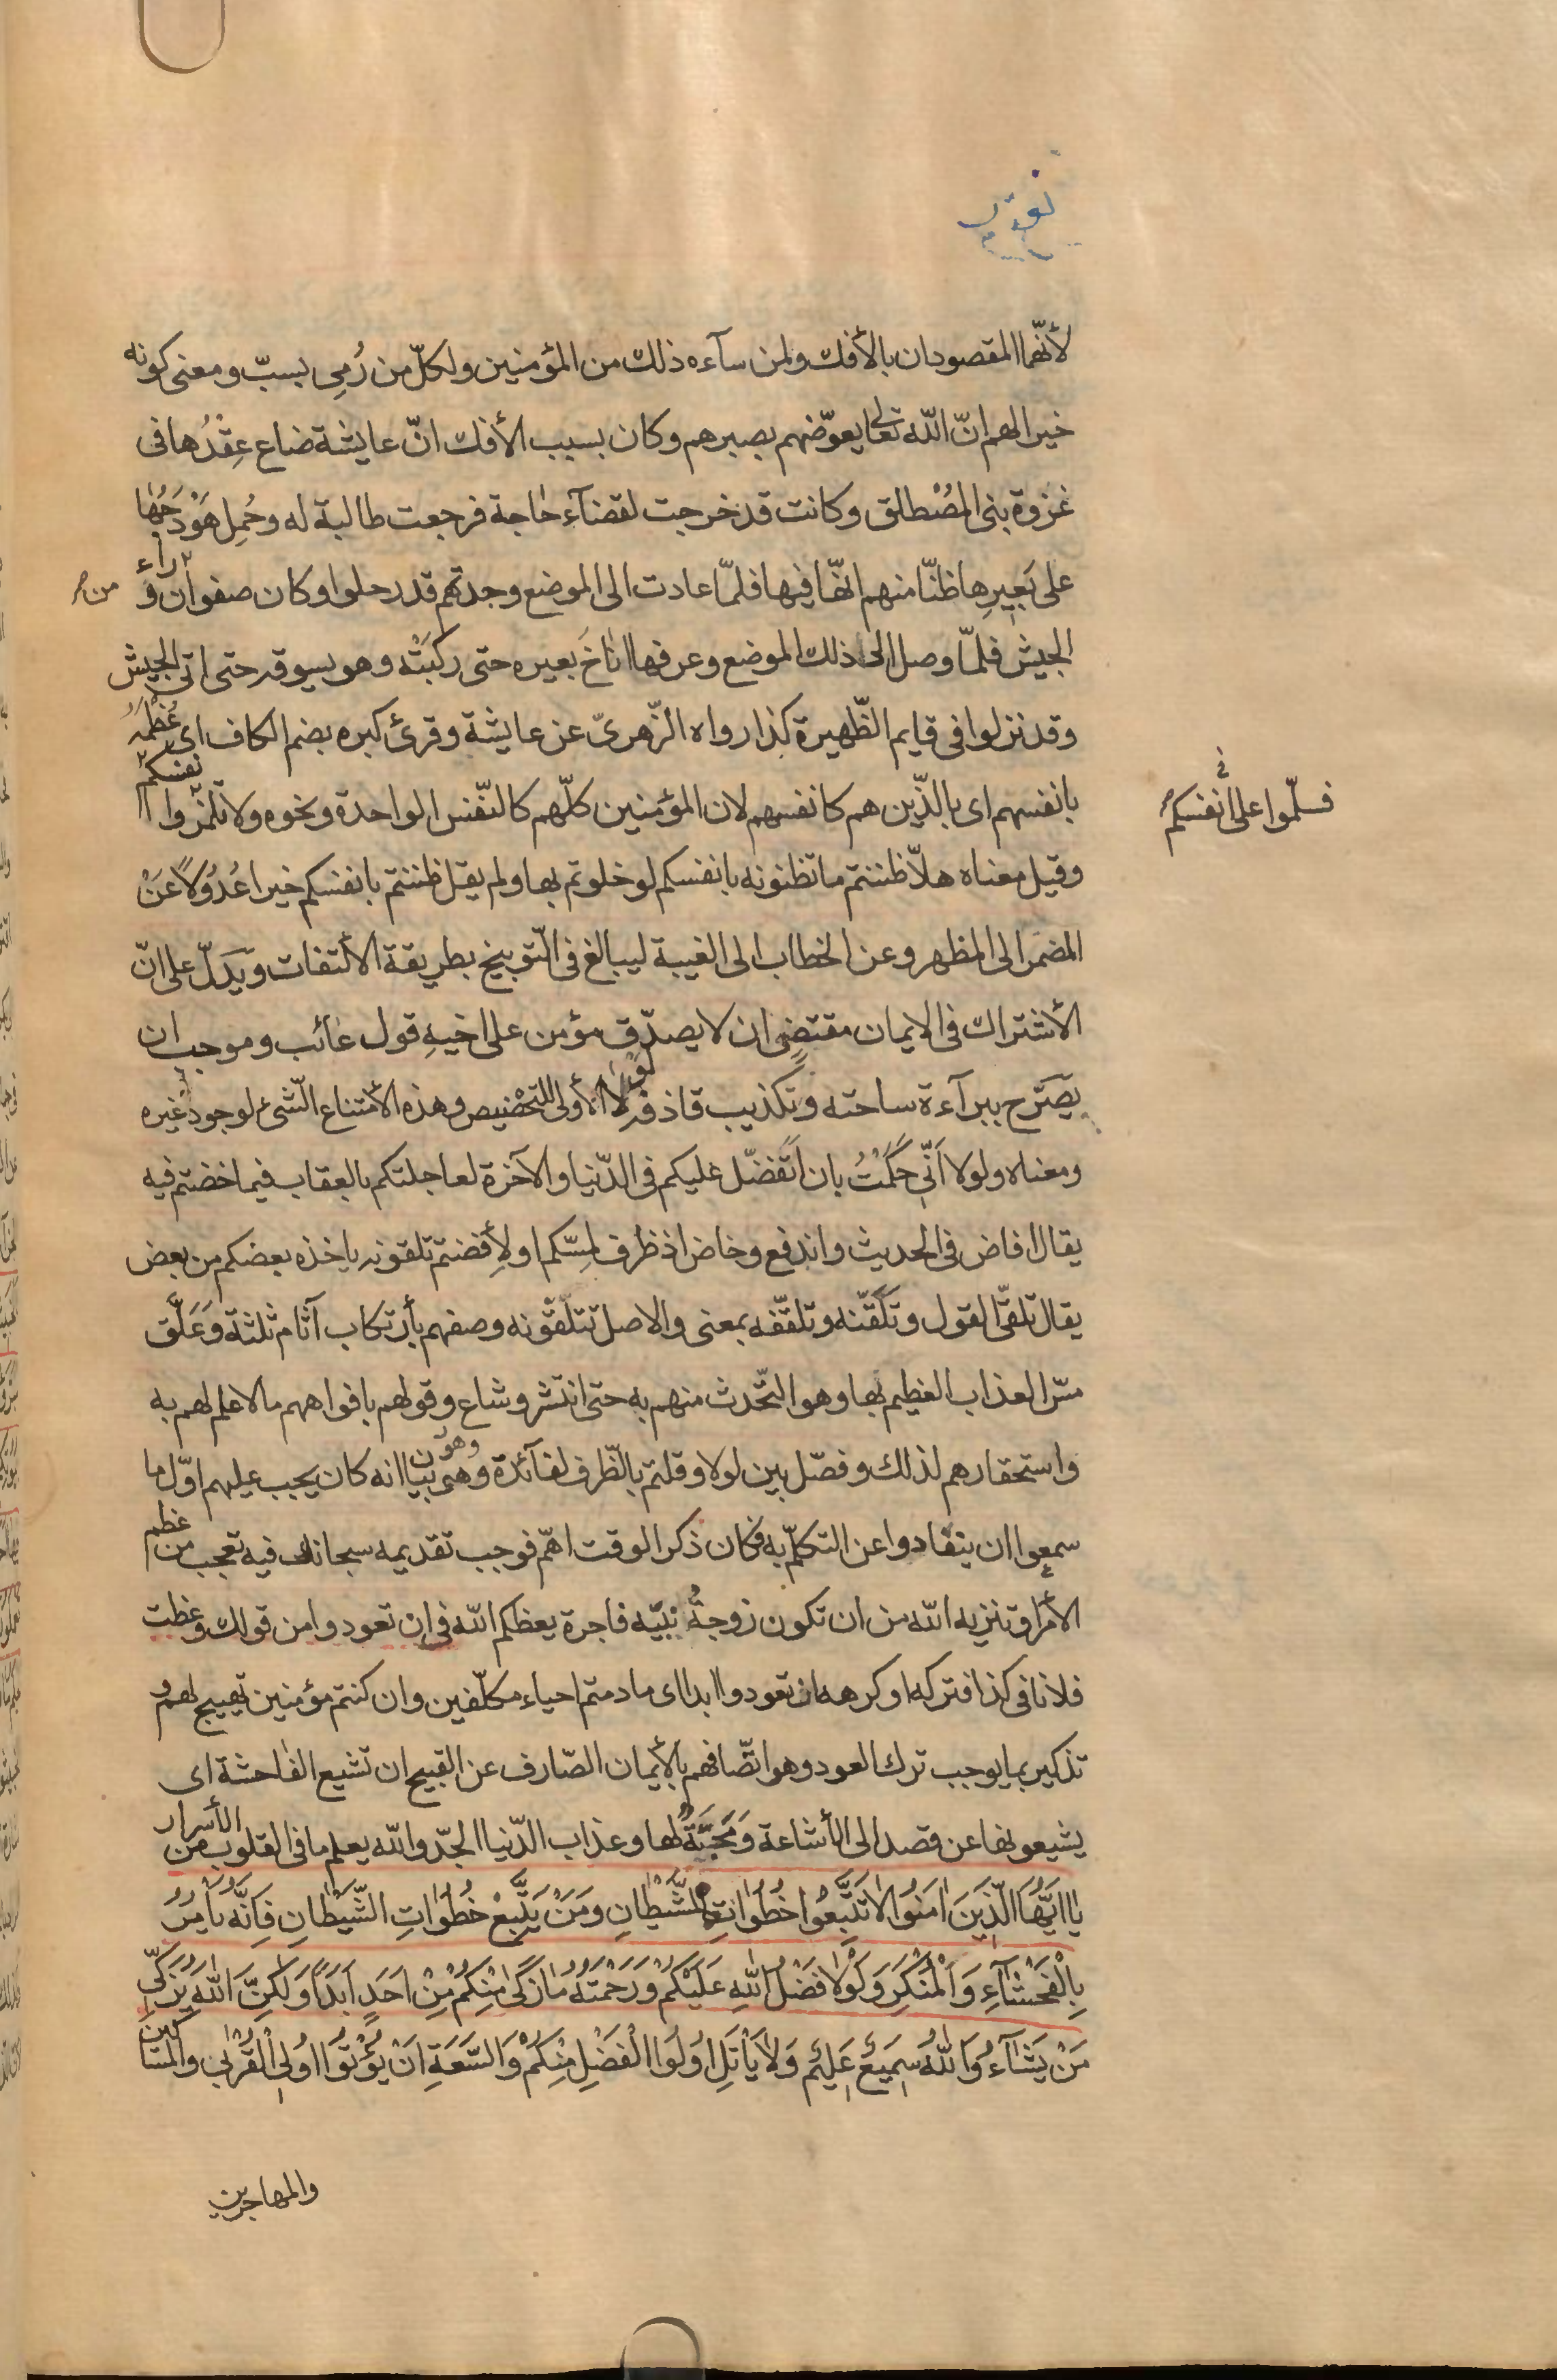 نور
لأنّهما المقصودان بالأفك ولمن سآءه ذلك من المؤمنين ولكلّ من رُمِى بسبّ ومعنى كونه
خيرا لهم انّ اللّه تعالى يعوّضهم بصبرهم وكان بسبب الأفك انّ عايشة ضاع عِقْدُها فى
غزوة بنى المُصْطلق وكانت قد خرجت لقضآء حاجة فرجعت طالبة له وحُمِل هَوْدَجُها
على بَعِيرِها ظنّا منهم انّها فيها فلمّا عادت الى الموضع وجدتهم قد رحلوا وكان صفوان ورآء
من
الجيش فلمّا وصل الى ذلك الموضع وعرفها اناخَ بعيره حتى ركبَتْه وهو يسوقه حتى اتى الجيش
وقد نزلوا فى قايم الظّهيرة كذا رواه الزّهرىّ عن عايشة وقرئ كبره بضم الكاف اى عُظْمَهُ
بانفسهم اى بالذّين هم كانفسهم لان المؤمنين كلّهم كالنّفس الواحدة ونحوه ولا تلمزوا انفسكم
فسلّموا على انفسكم
وقيل معناه هلاّ ظننتم ما تظنونه بانفسكم لو خلوتم بها ولم يقل ظننتم بانفسكم خيرا عُدُولًا عَنْ
المضمر الى المظهر وعن الخطاب الى الغيبة ليبالغ فى التّوبيخ بطريقة الألتفات ويَدلّ على انّ
الأشتراك فى الايمان مقتضٍى ان لا يصدّق مؤمن على اخيهِ قول عائب وموجب ان
يصَرّح ببرآءة ساحته وتكذيب قاذفه لولا الأولى للتحْضيض وهذه الأمتناع الّشىء لوجود غيره
ومعناه ولولا اَنّى حكَمْتُ بان اَتَفضّل عليكم فى الدّنيا والآخرة لعاجلتكم بالعقاب فيما خضتم فيه
يقال افاض فى الحديث واندفع وخاض اذ ظرف لمِسّكم او لأِفضتم تلقونه ياخذه بعضكم من بعض
يقال تلقّى القول وتَلَقَّنه وتلقّفه بمعنى والاصل تتلّقونه وصفهم بأرتكاب آثام ثلثة وَعَلَّق
مسّ العذاب العظيم بها وهو التّحدث منهم به حتى انتشر وشاع وقولهم بافواههم ما لا علم لهم به
واستحقارهم لذلك وفصّل بين لولا وقلتم بالظّرف لفآئدة وهى بيان انه كان يجب عليهم اوّل ما
وهو
سمعوا ان يتفادوا عن التكلّم به فكان ذكر الوقت اهّم فوجب تقديمه سبحانك فيه تعجب من عظم
الأمر او تنزيه اللّه من ان تكون زوجةُ نبيّه فاجرة يعظكم اللّه فى ان تعودوا من قولك وعظت
فلانا فى كذا فتركه او كرهه ان تعودوا ابدا اى ما دمتم احياء مكلّفين وان كنتم مؤمنين تهييج لهم و
تذكير بما يوجب ترك العود وهو اتّصافهم بالأيمان الصّارف عن القبيح ان تشيع الفاحشة اى
يشيعونها عن قصد الى الأشاعة وَمَحَبَّةً لها وعذاب الدّنيا الحّد واللّه يعلم ما فى القلوب من الأسرار
يا اَيُّهَا الَّذِينَ اٰمَنُوا لَا تَتَّبِعُوا خُطُوَاتِ الشَّيْطَانِ وَمَنْ يَتَّبِعْ خُطُوَاتِ الشَّيْطَانِ فَاِنَّهُ يَأْمُرُ
بِالْفَحْشَآءِ وَالْمُنْكَرِ وَلَوْلَا فَضْلُ اللّٰهِ عَلَيْكُمْ وَرَحْمَتُهُ مَا زَكٰى مِنْكُمْ مِنْ اَحَدٍ اَبَدًا وَلَكِنَّ اللّٰهَ يُزَكّى
مَنْ يَشَآءُ وَاللّٰهُ سَمِيعٌ عَلِيمٌ وَلَا يَأْتَلِ اُولُوا الْفَضْلِ مِنْكُمْ وَالسَّعَةِ اَنْ يُؤْتُوا اُولِى الْقُرْبٰى وَالْمَسَاكِينَ
والمهاجرين